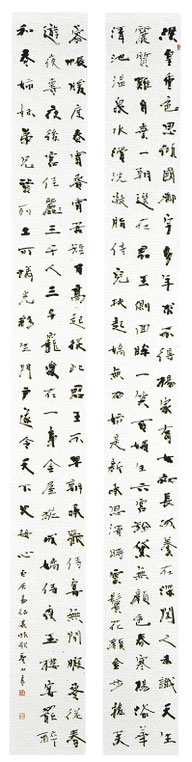 漢皇重色思傾國御宇多年求不得楊家有女初長成養在深閨人未識天生
麗質難自棄一朝選在君王側回眸一笑百媚生六宮粉黛無顏色春寒賜浴華
清池溫泉水滑洗凝脂侍兒扶起嬌無力始是新承恩澤時雲鬢花顏金步搖芙
蓉帳暖度春宵春宵苦短日高起從此君王不早朝承歡侍宴無閑暇春從春
遊夜專夜後宮佳麗三千人三千寵愛在一身金屋妝成嬌侍夜玉樓宴罷醉
和春姊妹弟兄皆列土可憐光彩生門戶遂令天下父母心
白居易長恨歌